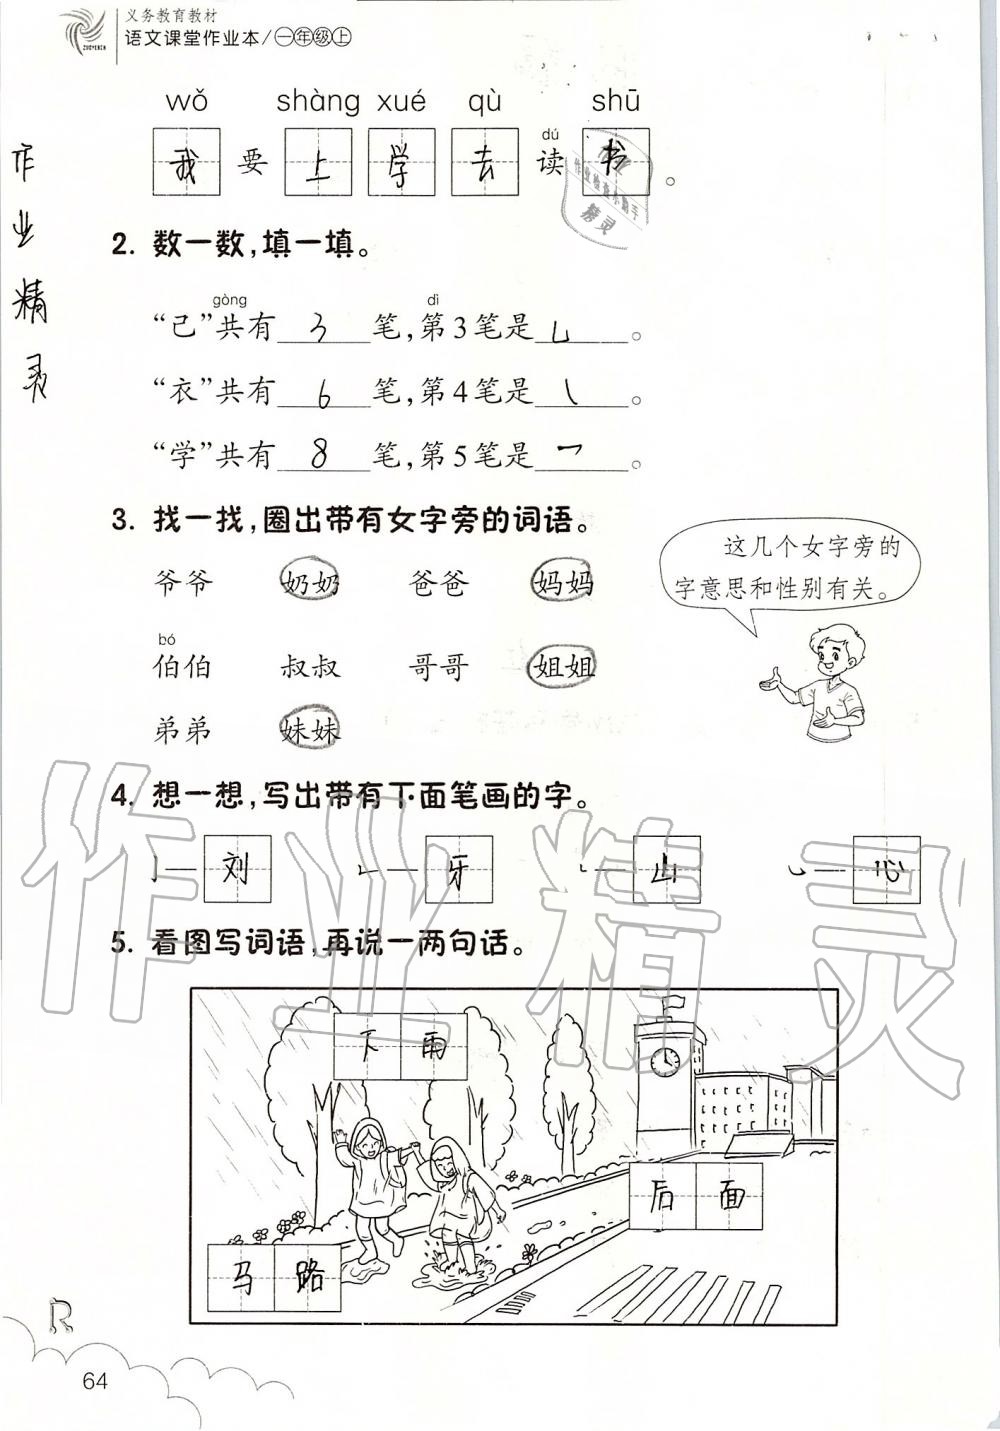 义务教育教材
语文课堂作业本/一年级上
ZUOYEBEN
wǒ shàng xué qù shū
dú
我要上学去读书。
作业精灵
作业
作业检查小助手
精灵
2. 数一数,填一填。
gòng dì
“己”共有 3 笔,第3笔是 乚 。
“衣”共有 6 笔,第4笔是 ㇏ 。
“学”共有 8 笔,第5笔是 乛 。
3. 找一找,圈出带有女字旁的词语。
爷爷 奶奶 爸爸 妈妈
bó
伯伯 叔叔 哥哥 姐姐
弟弟 妹妹
这几个女字旁的
字意思和性别有关。
4. 想一想,写出带有下面笔画的字。
亅—刘 ㇄—牙 ㇄—山 ㇃—心
5. 看图写词语,再说一两句话。
下雨
后面
马路
R
64
作业精灵